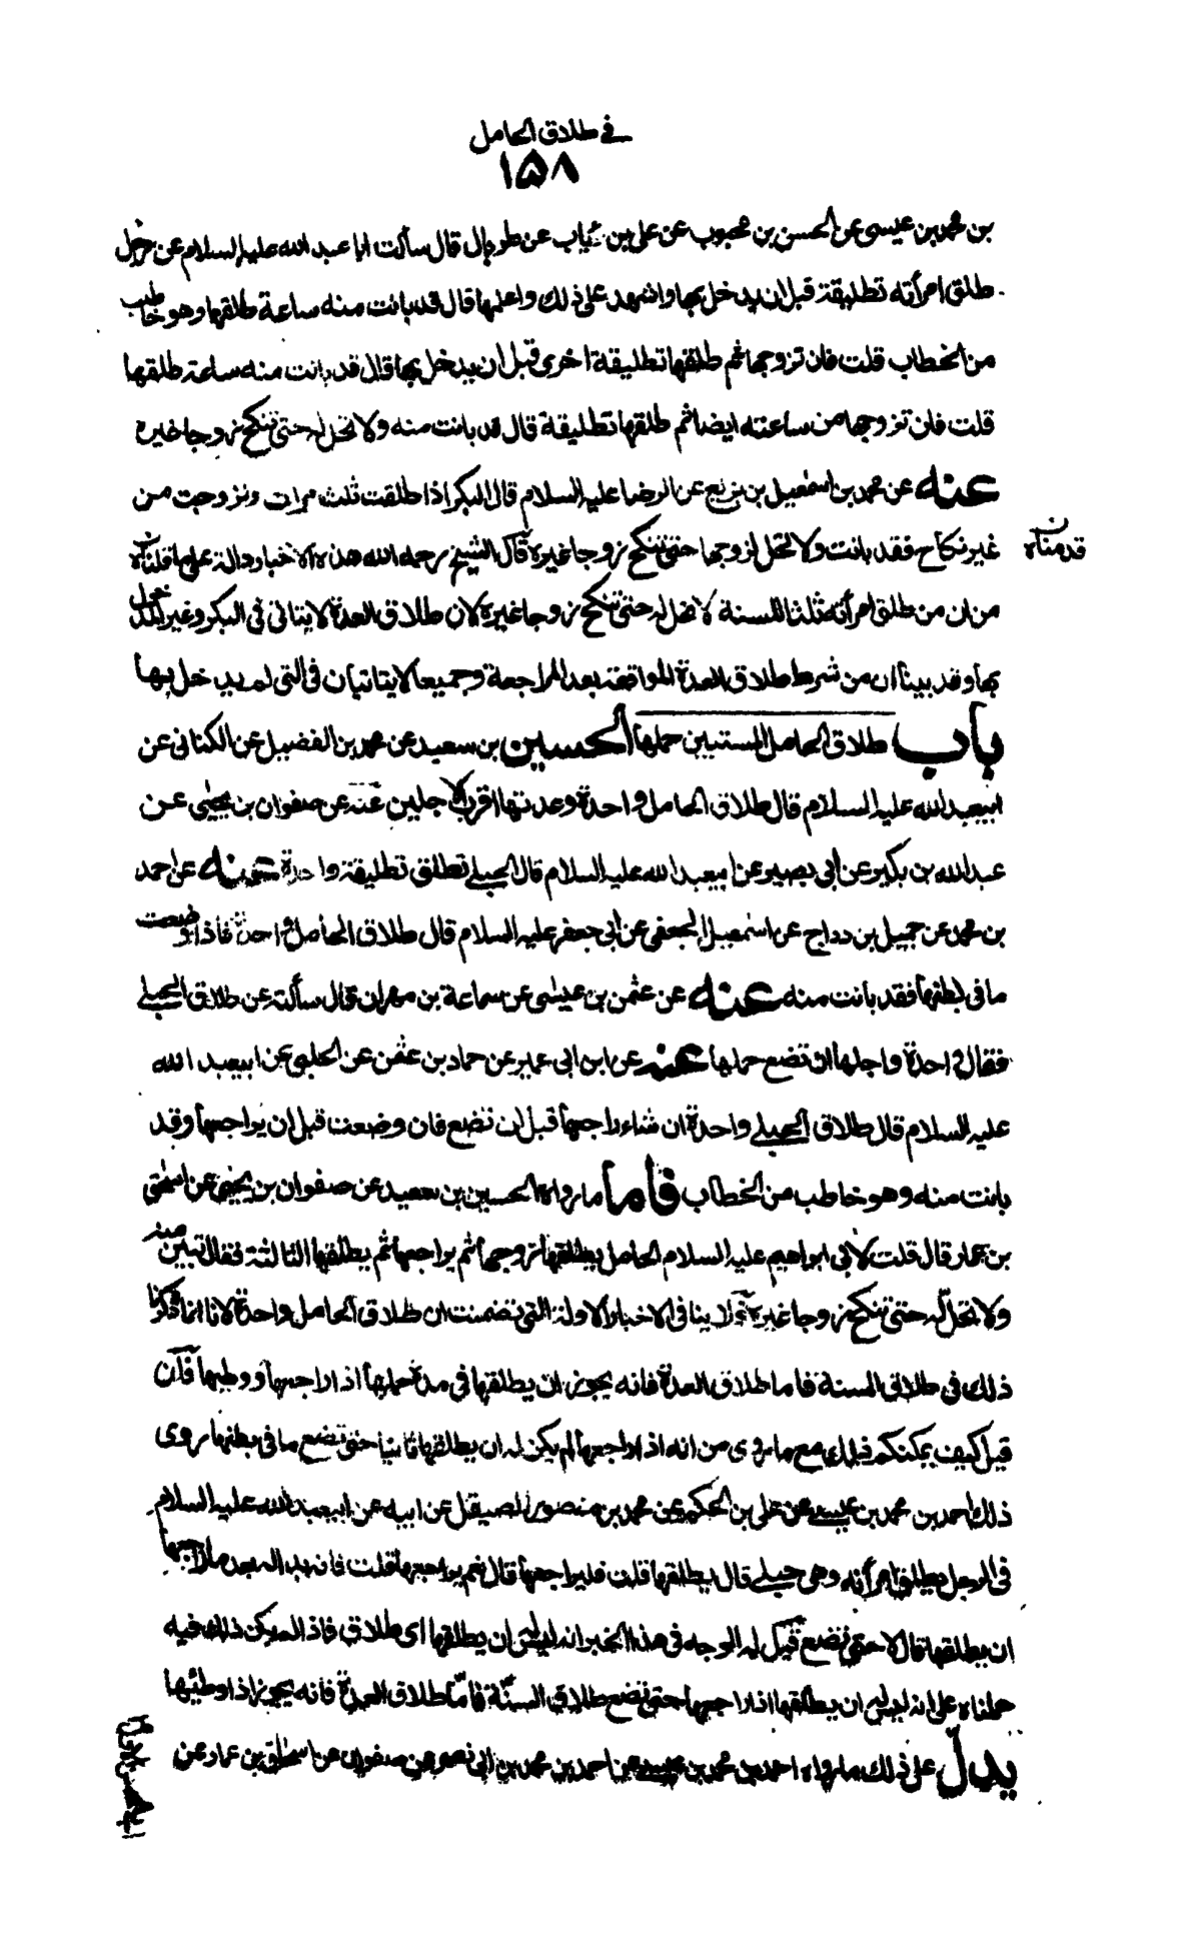 في طلاق الحامل
١٥٨
بن محمد بن عيسى عن الحسن بن محبوب عن علي بن رئاب عن طربال قال سألت ابا عبد الله عليه السلام عن رجل
طلق امرأته تطليقة قبل ان يدخل بها واشهد على ذلك واعلمها قال قد بانت منه ساعة طلقها وهو خاطب
من الخطاب قلت فان تزوجها ثم طلقها تطليقة اخرى قبل ان يدخل بها قال قد بانت منه ساعة طلقها
قلت فان تزوجها من ساعته ايضا ثم طلقها تطليقة قال قد بانت منه ولا تحل له حتى تنكح زوجا غيره
عنه عن محمد بن اسمعيل بن بزيع عن الرضا عليه السلام قال البكر اذا طلقت ثلث مرات وتزوجت من
غير نكاح فقد بانت ولا تحل لزوجها حتى تنكح زوجا غيره قال الشيخ رحمه الله هذه الاخبار دالة على ما قلناه
قدمناه ن
من ان من طلق امرأته ثلثا للسنة لا تحل له حتى تنكح زوجا غيره لان طلاق العدة لا يتاتى في البكر وغير المدخول
بها وقد بينا ان من شرط طلاق العدة المواقعة بعد المراجعة وجميعا لا يتاتيان في التي لم يدخل بها
باب طلاق الحامل المستبين حملها الحسين بن سعيد عن محمد بن الفضيل عن الكناني عن
ابيعبد الله عليه السلام قال طلاق الحامل واحدة وعدتها اقرب الاجلين عنه عن صفوان بن يحيى عن
عبد الله بن بكير عن ابي بصير عن ابيعبد الله عليه السلام قال الحبلى تطلق تطليقة واحدة عنه عن احمد
بن محمد عن جميل بن دراج عن اسمعيل الجعفي عن ابي جعفر عليه السلام قال طلاق الحامل واحدة فاذا وضعت
ما في بطنها فقد بانت منه عنه عن عثمن بن عيسى عن سماعة بن مهران قال سألته عن طلاق الحبلى
فقال واحدة واجلها ان تضع حملها عنه عن ابن ابي عمير عن حماد بن عثمن عن الحلبي عن ابيعبد الله
عليه السلام قال طلاق الحبلى واحدة ان شاء راجعها قبل ان تضع فان وضعت قبل ان يراجعها وقد
بانت منه وهو خاطب من الخطاب فأما ما رواه الحسين بن سعيد عن صفوان بن يحيى عن اسحق
بن عمار قال قلت لابي ابراهيم عليه السلام الحامل يطلقها زوجها ثم يراجعها ثم يطلقها الثالثة فقال تبين منه
ولا تحل له حتى تنكح زوجا غيره فلا ينافي الاخبار الاولة التي تضمنت ان طلاق الحامل واحدة لانا انما ذكرنا
ذلك في طلاق السنة فاما طلاق العدة فانه يجوز ان يطلقها في مدة حملها اذا راجعها ووطيها فان
قيل كيف يمكنكم ذلك مع ما روي من انه اذا راجعها لم يكن له ان يطلقها ثانيا حتى تضع ما في بطنها روى
ذلك احمد بن محمد بن عيسى عن علي بن الحكم عن محمد بن منصور الصيقل عن ابيه عن ابيعبد الله عليه السلام
في الرجل يطلق امرأته وهي حبلى قال يطلقها قلت فيراجعها قال نعم يراجعها قلت فانه بدا له بعد ما راجعها
ان يطلقها قال لا حتى تضع قيل له الوجه في هذا الخبر انه ليس ان يطلقها اي طلاق فاذا لم يكن ذلك فيه
حملناه على انه ليس له ان يطلقها اذا راجعها حتى تضع طلاق السنة فاما طلاق العدة فانه يجوز اذا وطئها
يدل على ذلك ما رواه احمد بن محمد بن عيسى عن احمد بن محمد بن ابي نصر عن صفوان عن اسحق بن عمار عن